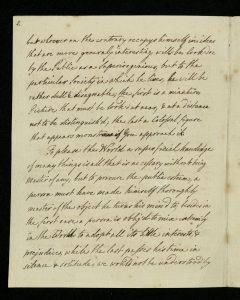 2.
but whoever on the contrary occupys himself in ideas
that are more generaly interesting will be look'd on
by the Public as a Superior genius, but to the
particular Society in which he lives, he will be
rather dull & disagreable, the first is a miniature
Picture that must be look'd at near, & at a distance
not to be distinguish'd, the last a Colossal figure
that appears monstrous if you approach it
To please the World a superficial knowledge
of many things is all that is necessary without being
master of any, but to procure the public esteem, a
person must have made himself thoroughly
master of the object he turns his mind to, besides in
the first case a person is oblig'd to mix intimately
in the World to adopt all its little interests &
prejudices, while the last passes his time in
silence & solitude, we would not be understood by